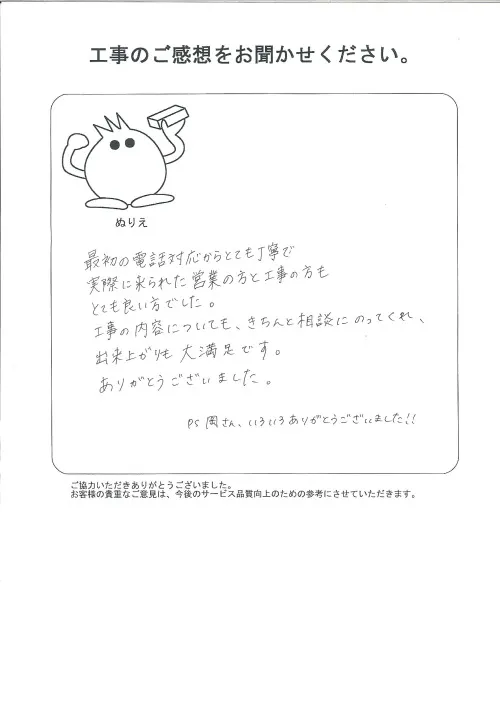 工事のご感想をお聞かせください。
ぬりえ
最初の電話対応からとても丁寧で
実際に来られた営業の方と工事の方も
とても良い方でした。
工事の内容についても、きちんと相談にのってくれ、
出来上がりも大満足です。
ありがとうございました。
PS 岡さん、いろいろありがとうございました!!
ご協力いただきありがとうございました。
お客様の貴重なご意見は、今後のサービス品質向上のための参考にさせていただきます。